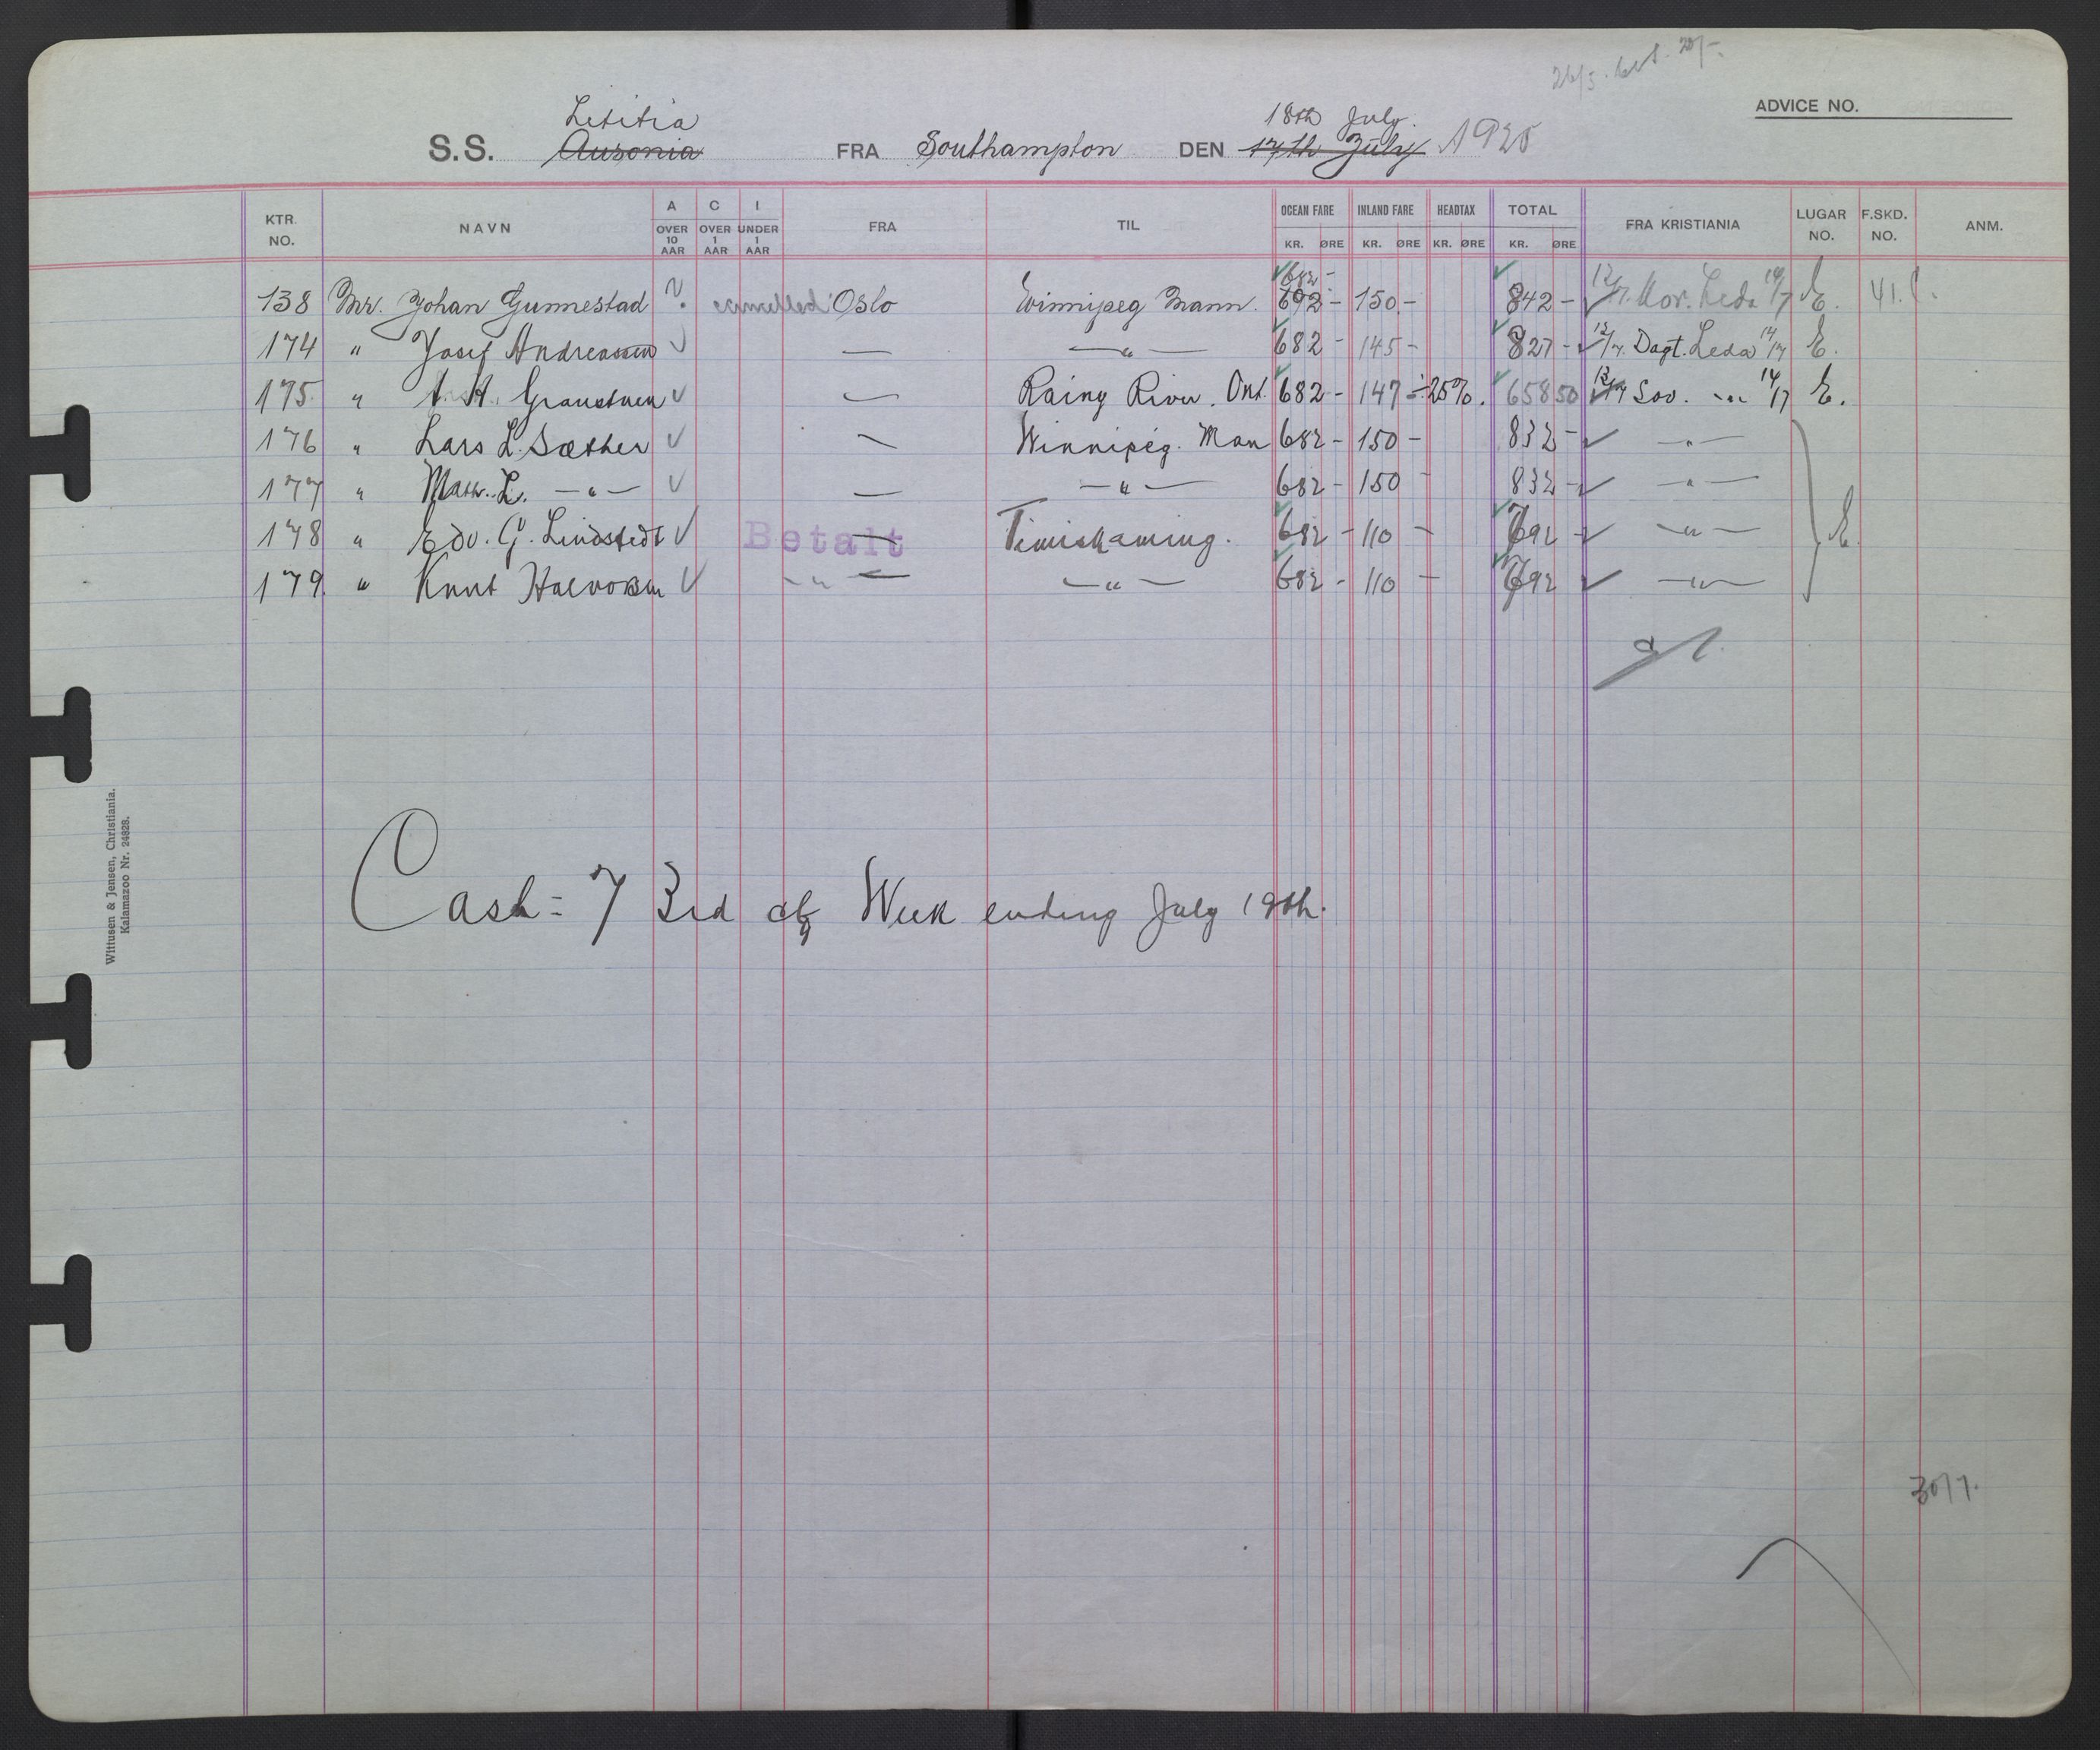 ADVICE NO.
Letitia 18th July
S.S. Ausonia FRA Southampton DEN 17th July 1925
KTR. NO. NAVN A OVER 10 AAR C OVER 1 AAR I UNDER 1 AAR FRA TIL OCEAN FARE KR. ØRE INLAND FARE KR. ØRE HEADTAX KR. ØRE TOTAL KR. ØRE FRA KRISTIANIA LUGAR NO. F.SKD. NO. ANM.
682 -
138 Mr. Johan Gunnestad ? cancelled Oslo Winnipeg Mann. 692 - 150.- 842 - 12/7. Mor. Leda 14/7 E. 41.
174 " Josef Andreassen ✓ — —"— 682 - 145 - 827 - ✓ 13/7. Dagt. Leda 14/7 E.
175 " A. A. ✓ — Rainy River. Ont. 682 - 147 ÷ 25%. 658 50 13/7 Sov. -"- 14/7 E.
176 " Lars L. Sæther ✓ — Winnipeg. Man 682 - 150 - 832 - ✓ —"—
177 " L. —"— ✓ — —"— 682 - 150 - 832 - ✓ —"—
178 " Edv. G. Lindstedt ✓ Betalt — Timiskaming. 682 - 110 - 792 - ✓ —"— E.
179. " Knut Halvorsen ✓ -"- — —"— 682 - 110 - 792 ✓ —"—
Cash = 7 3rd cl Week ending July 19th.
Wittusen & Jensen, Christiania.
Kalamazoo Nr. 24828.
30/7.